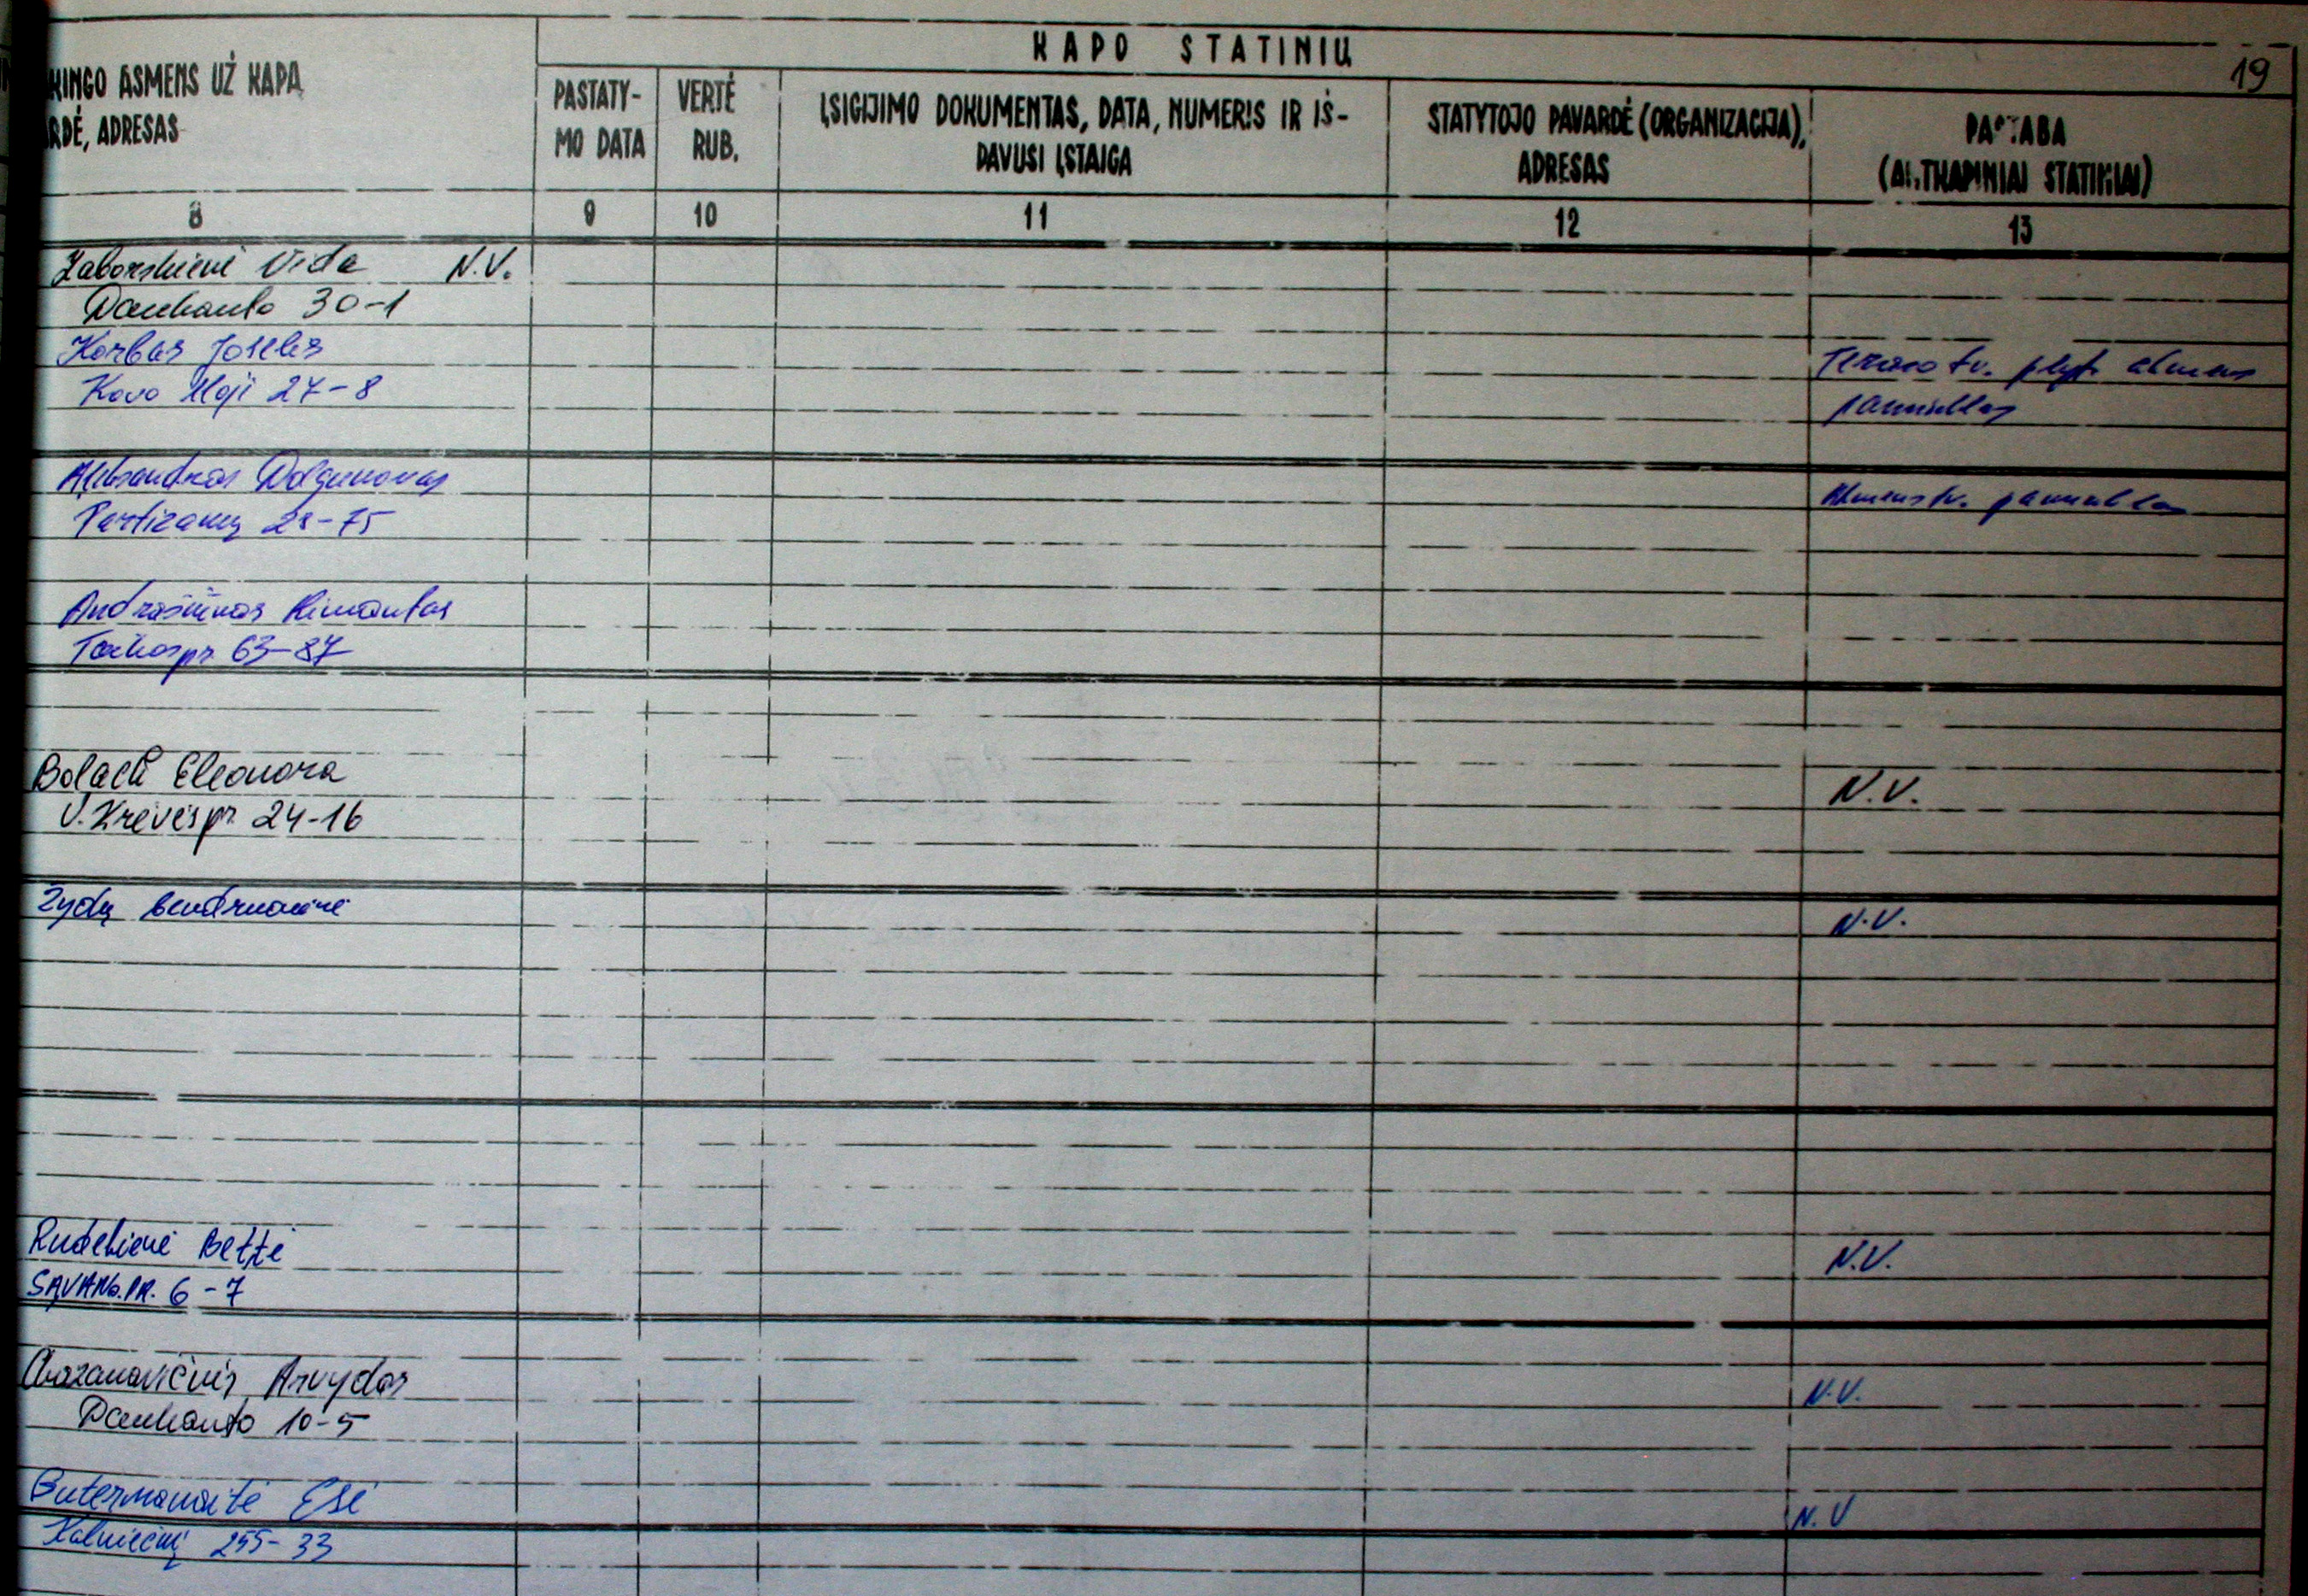 KAPO STATINIŲ
19
KINGO ASMENS UŽ KAPĄ
RDĖ, ADRESAS
PASTATY-
MO DATA
VERTĖ
RUB.
ĮSIGIJIMO DOKUMENTAS, DATA, NUMERIS IR IŠ-
DAVUSI ĮSTAIGA
STATYTOJO PAVARDĖ (ORGANIZACIJA),
ADRESAS
PASTABA
(ANTKAPINIAI STATINIAI)
8 9 10 11 12 13
Zaborskienė Vida N.V.
Daukanto 30-1
Korbas Joselis
Kovo 11oji 27-8
Teraco tv. plyt. akmens
paminklas
Aleksandras Dolgunovas
Partizanų 28-75
Akmens tv. paminklas
Andrašiūnas Rimantas
Taikos pr. 63-87
Eleonora
V. Krėvės pr. 24-16
N.V.
Žydų bendruomenė
N.V.
Rudekienė Bettė
SAVANO. PR. 6-7
N.V.
Chazanavičius Arvydas
Daukanto 10-5
N.V.
Butermanaitė Esė
N.V
Kalniečių 255-33